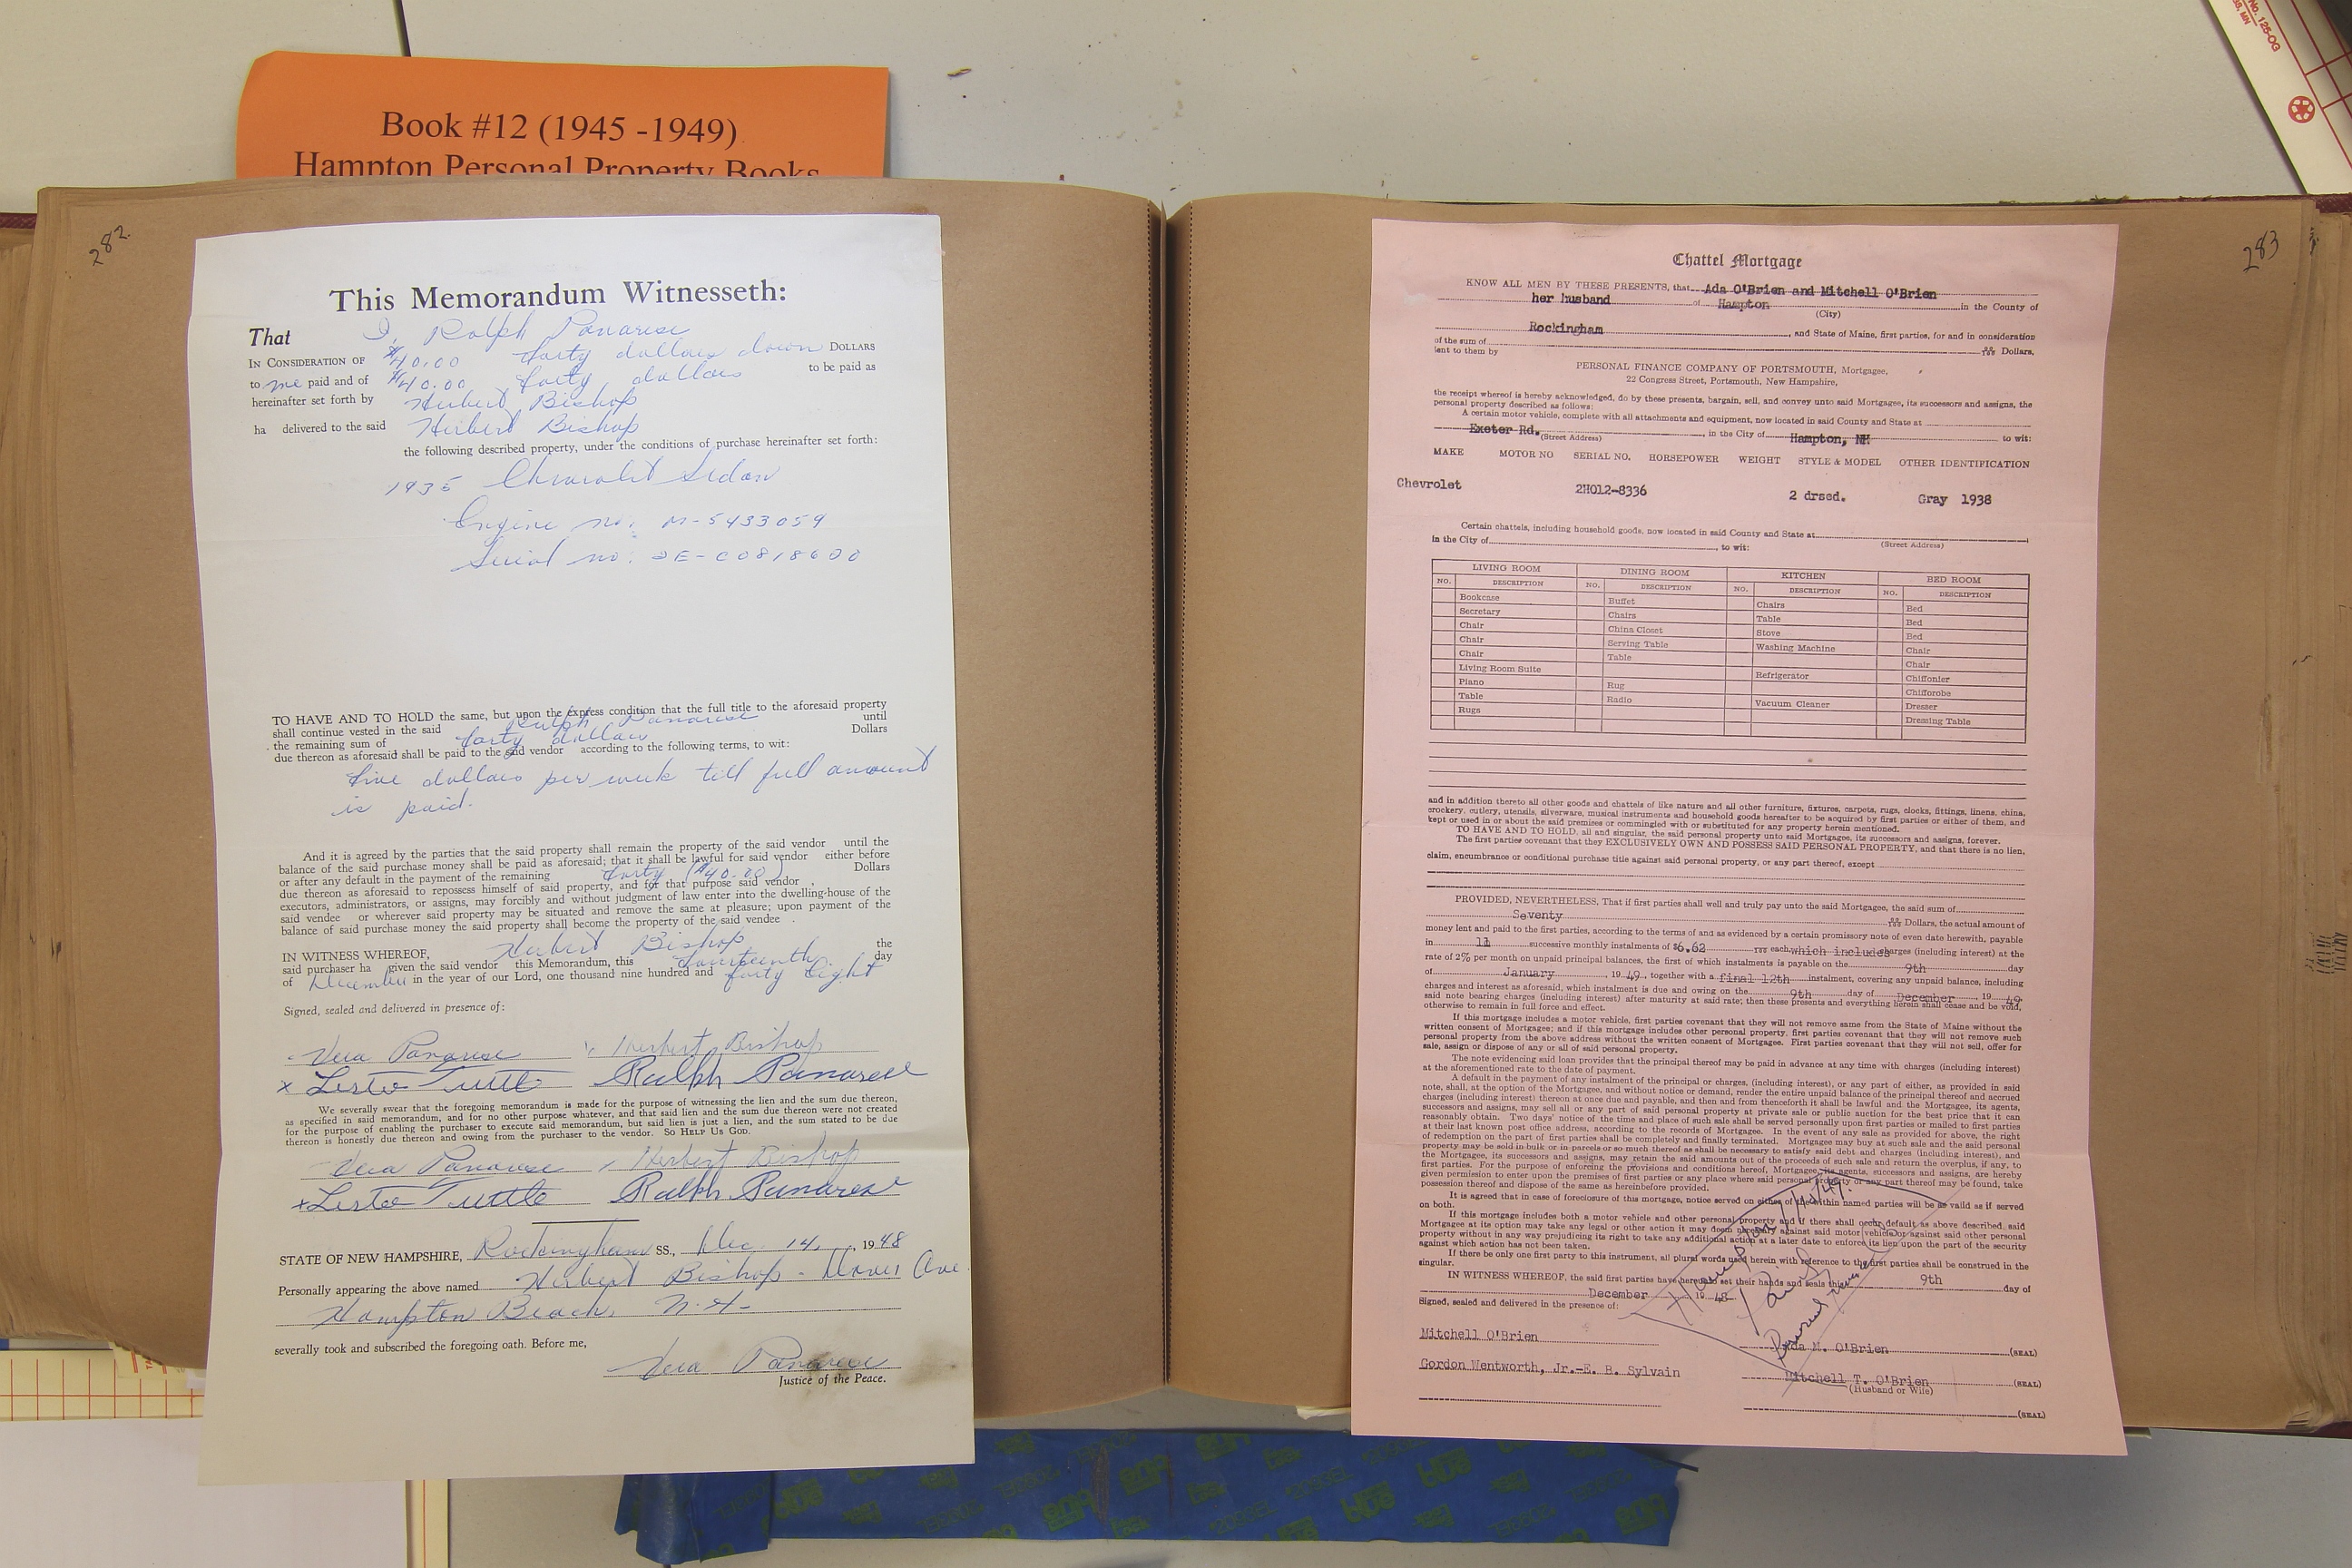 Book #12 (1945 -1949)
Hampton Personal Property Books
282.
This Memorandum Witnesseth:
That I, Ralph Panarese
IN CONSIDERATION OF $40.00 forty dollars down DOLLARS
to me paid and of $40.00 forty dollars to be paid as
hereinafter set forth by Herbert Bishop
ha delivered to the said Herbert Bishop
the following described property, under the conditions of purchase hereinafter set forth:
1935 Chevrolet Sedan
Engine no: M-5433059
Serial no: 2E-C0818600
TO HAVE AND TO HOLD the same, but upon the express condition that the full title to the aforesaid property
shall continue vested in the said Ralph Panarese until
the remaining sum of forty dollars Dollars
due thereon as aforesaid shall be paid to the said vendor according to the following terms, to wit:
five dollars per week till full amount
is paid.
And it is agreed by the parties that the said property shall remain the property of the said vendor until the
balance of the said purchase money shall be paid as aforesaid; that it shall be lawful for said vendor either before
or after any default in the payment of the remaining forty ($40.00) Dollars
due thereon as aforesaid to repossess himself of said property, and for that purpose said vendor ,
executors, administrators, or assigns, may forcibly and without judgment of law enter into the dwelling-house of the
said vendee or wherever said property may be situated and remove the same at pleasure; upon payment of the
balance of said purchase money the said property shall become the property of the said vendee .
IN WITNESS WHEREOF, Herbert Bishop the
said purchaser ha given the said vendor this Memorandum, this fourteenth day
of December in the year of our Lord, one thousand nine hundred and forty Eight
Signed, sealed and delivered in presence of:
Vera Panarese Herbert Bishop
x Lester Tuttle Ralph Panarese
We severally swear that the foregoing memorandum is made for the purpose of witnessing the lien and the sum due thereon,
as specified in said memorandum, and for no other purpose whatever, and that said lien and the sum due thereon were not created
for the purpose of enabling the purchaser to execute said memorandum, but said lien is just a lien, and the sum stated to be due
thereon is honestly due thereon and owing from the purchaser to the vendor. SO HELP US GOD.
Vera Panarese Herbert Bishop
x Lester Tuttle Ralph Panarese
STATE OF NEW HAMPSHIRE, Rockingham SS., Dec. 14, 1948
Personally appearing the above named Herbert Bishop - Dover Ave.
Hampton Beach, N.H.
severally took and subscribed the foregoing oath. Before me,
Vera Panarese
Justice of the Peace.
283
Chattel Mortgage
KNOW ALL MEN BY THESE PRESENTS, that Ada O'Brien and Mitchell O'Brien
her husband of Hampton in the County of
(City)
Rockingham , and State of Maine, first parties, for and in consideration
of the sum of Dollars,
lent to them by
PERSONAL FINANCE COMPANY OF PORTSMOUTH, Mortgagee,
22 Congress Street, Portsmouth, New Hampshire,
the receipt whereof is hereby acknowledged, do by these presents, bargain, sell, and convey unto said Mortgagee, its successors and assigns, the
personal property described as follows:
A certain motor vehicle, complete with all attachments and equipment, now located in said County and State at
Exeter Rd. (Street Address) , in the City of Hampton, NH to wit:
MAKE MOTOR NO SERIAL NO. HORSEPOWER WEIGHT STYLE & MODEL OTHER IDENTIFICATION
Chevrolet 2H012-8336 2 drsed. Gray 1938
Certain chattels, including household goods, now located in said County and State at
(Street Address)
in the City of , to wit:
LIVING ROOM DINING ROOM KITCHEN BED ROOM
NO. DESCRIPTION NO. DESCRIPTION NO. DESCRIPTION NO. DESCRIPTION
Bookcase Buffet Chairs Bed
Secretary Chairs Table Bed
Chair China Closet Stove Bed
Chair Serving Table Washing Machine Chair
Chair Table Chair
Living Room Suite Refrigerator Chiffonier
Piano Rug Chifforobe
Table Radio Vacuum Cleaner Dresser
Rugs Dressing Table
and in addition thereto all other goods and chattels of like nature and all other furniture, fixtures, carpets, rugs, clocks, fittings, linens, china,
crockery, cutlery, utensils, silverware, musical instruments and household goods hereafter to be acquired by first parties or either of them, and
kept or used in or about the said premises or commingled with or substituted for any property herein mentioned.
TO HAVE AND TO HOLD, all and singular, the said personal property unto said Mortgagee, its successors and assigns, forever.
The first parties covenant that they EXCLUSIVELY OWN AND POSSESS SAID PERSONAL PROPERTY, and that there is no lien,
claim, encumbrance or conditional purchase title against said personal property, or any part thereof, except
PROVIDED, NEVERTHELESS, That if first parties shall well and truly pay unto the said Mortgagee, the said sum of
Seventy Dollars, the actual amount of
money lent and paid to the first parties, according to the terms of and as evidenced by a certain promissory note of even date herewith, payable
in 11 successive monthly instalments of $6.62 each, which includes charges (including interest) at the
rate of 2% per month on unpaid principal balances, the first of which instalments is payable on the 9th day
of January , 19 49 , together with a final 12th instalment, covering any unpaid balance, including
charges and interest as aforesaid, which instalment is due and owing on the 9th day of December , 19 49
said note bearing charges (including interest) after maturity at said rate; then these presents and everything herein shall cease and be void,
otherwise to remain in full force and effect.
If this mortgage includes a motor vehicle, first parties covenant that they will not remove same from the State of Maine without the
written consent of Mortgagee; and if this mortgage includes other personal property, first parties covenant that they will not remove such
personal property from the above address without the written consent of Mortgagee. First parties covenant that they will not sell, offer for
sale, assign or dispose of any or all of said personal property.
The note evidencing said loan provides that the principal thereof may be paid in advance at any time with charges (including interest)
at the aforementioned rate to the date of payment.
A default in the payment of any instalment of the principal or charges, (including interest), or any part of either, as provided in said
note, shall, at the option of the Mortgagee, and without notice or demand, render the entire unpaid balance of the principal thereof and accrued
charges (including interest) thereon at once due and payable, and from thenceforth it shall be lawful and the Mortgagee, its agents,
successors and assigns, may sell all or any part of said personal property at private sale or public auction for the best price that it can
reasonably obtain. Two days' notice of the time and place of such sale shall be served personally upon first parties or mailed to first parties
at their last known post office address, according to the records of Mortgagee. In the event of any sale as provided for above, the right
of redemption on the part of first parties shall be completely and finally terminated. Mortgagee may buy at such sale and the said personal
property may be sold in bulk or in parcels or so much thereof as shall be necessary to satisfy said debt and charges (including interest), and
the Mortgagee, its successors and assigns, may retain the said amounts out of the proceeds of such sale and return the overplus, if any, to
first parties. For the purpose of enforcing the provisions and conditions hereof, Mortgagee, its agents, successors and assigns, are hereby
given permission to enter upon the premises of first parties or any place where said personal property or any part thereof may be found, take
possession thereof and dispose of the same as hereinbefore provided.
It is agreed that in case of foreclosure of this mortgage, notice served on either of the within named parties will be as valid as if served
on both.
If this mortgage includes both a motor vehicle and other personal property and if there shall occur default as above described, said
Mortgagee at its option may take any legal or other action it may deem necessary against said motor vehicle or against said other personal
property without in any way prejudicing its right to take any additional action at a later date to enforce its lien upon the part of the security
against which action has not been taken.
If there be only one first party to this instrument, all plural words used herein with reference to the first parties shall be construed in the
singular.
IN WITNESS WHEREOF, the said first parties have hereunto set their hands and seals this 9th day of
December 19 48
Signed, sealed and delivered in the presence of:
Mitchell O'Brien Ada M. O'Brien (SEAL)
Gordon Wentworth, Jr.-E. B. Sylvain Mitchell T. O'Brien (SEAL)
(Husband or Wife)
(SEAL)